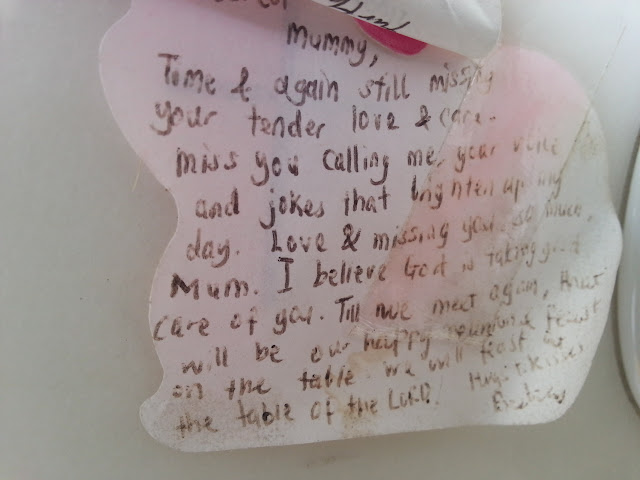 Mummy,
Time & again still missing
your tender love & care.
Miss you calling me, your voice
and jokes that brighten up my
day. Love & missing you so much,
Mum. I believe God is taking good
care of you. Till we meet again, that
will be our happy reunions feast
on the table we will feast at
the table of the LORD. Hugs & kisses